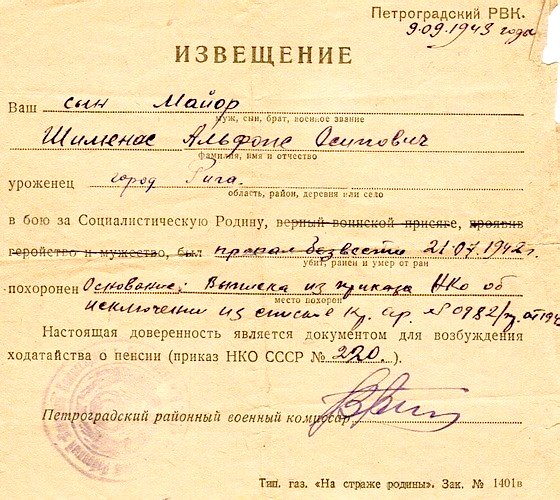 Петроградский РВК.
9.09.1943 года
ИЗВЕЩЕНИЕ
Ваш сын Майор
муж, сын, брат, военное звание
Шименас Альфонс Осипович
Фамилия, имя и отчество
уроженец город Рига.
область, район, деревня или село
в бою за Социалистическую Родину, верный воинской присяге, проявив
геройство и мужество, был пропал без вести 21.07.1942 г.
убит, ранен и умер от ран
похоронен Основание: Выписка из приказа НКО об
место похорон
исключении из списков Кр. ар. № 0982/
Настоящая доверенность является документом для возбуждения
ходатайства о пенсии (приказ НКО СССР № 220.).
Петроградский районный военный комиссар
Тип. газ. „На страже родины". Зак. № 1401в